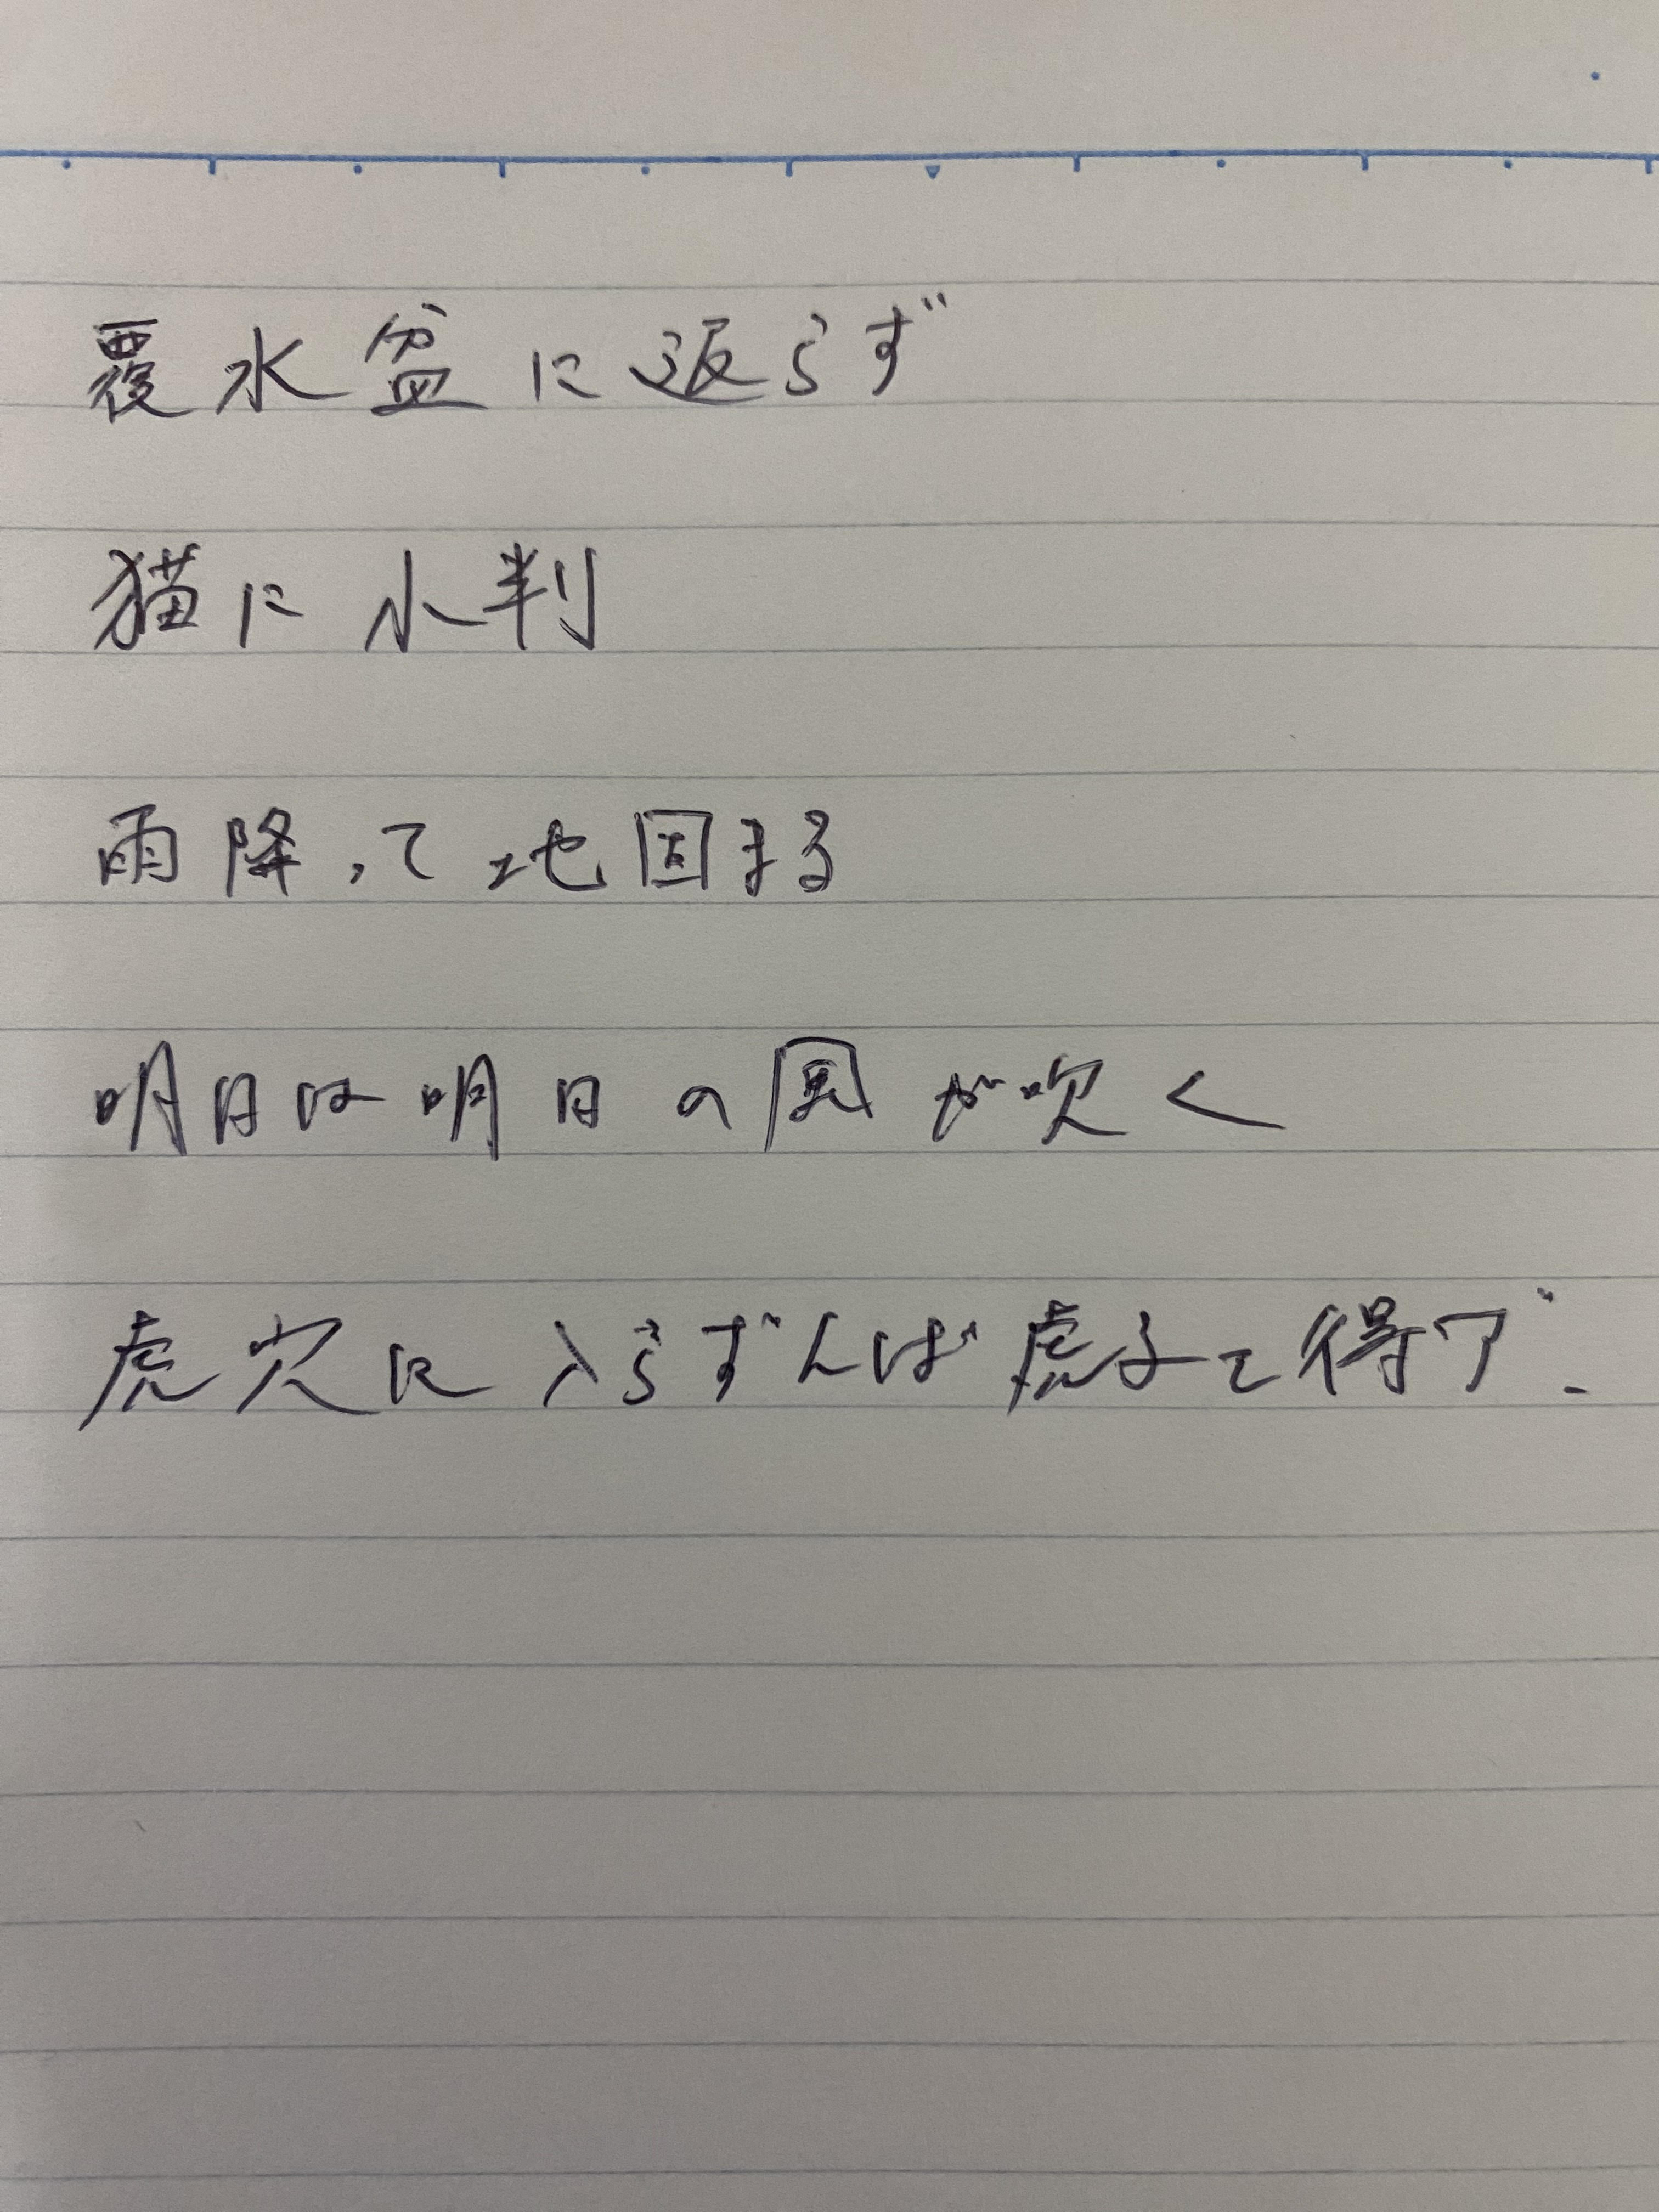 覆水盆に返らず
猫に小判
雨降って地固まる
明日は明日の風が吹く
虎穴に入らずんば虎子を得ず